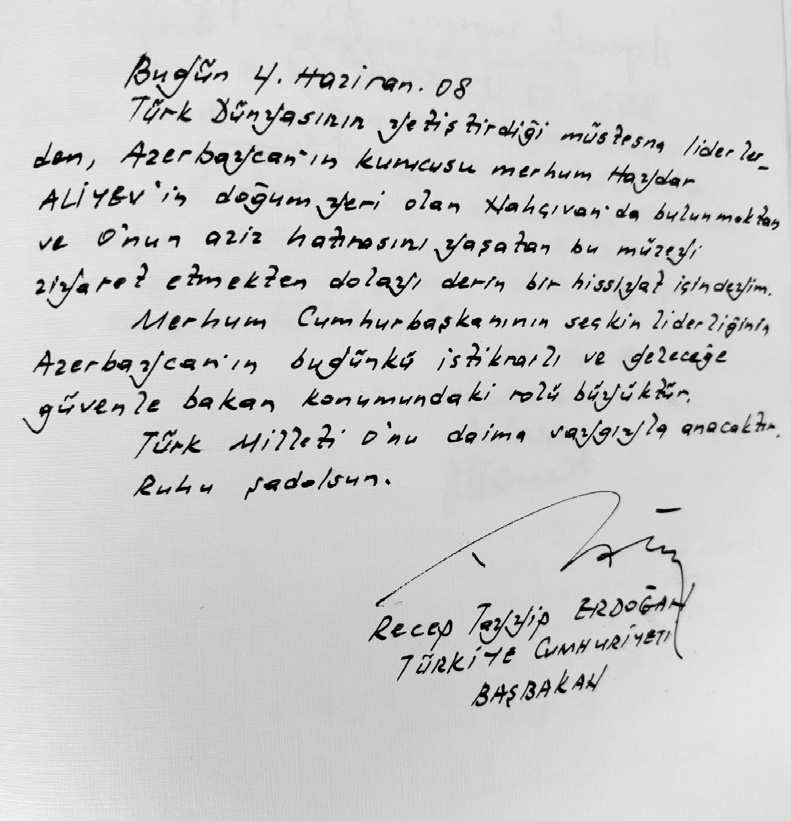 Bugün 4. Haziran. 08
Türk Dünyasının yetiştirdiği müstesna liderler-
den, Azerbaycan'ın kurucusu merhum Haydar
ALİYEV'in doğum yeri olan Nahçıvan'da bulunmaktan
ve O'nun aziz hatırasını yaşatan bu müzeyi
ziyaret etmekten dolayı derin bir hissiyat içindeyim.
Merhum Cumhurbaşkanının seçkin liderliğinin
Azerbaycan'ın bugünkü istikrarlı ve geleceğe
güvenle bakan konumundaki rolü büyüktür.
Türk Milleti O'nu daima saygıyla anacaktır.
Ruhu şadolsun.
Recep Tayyip ERDOĞAN
TÜRKİYE CUMHURİYETİ
BAŞBAKAN